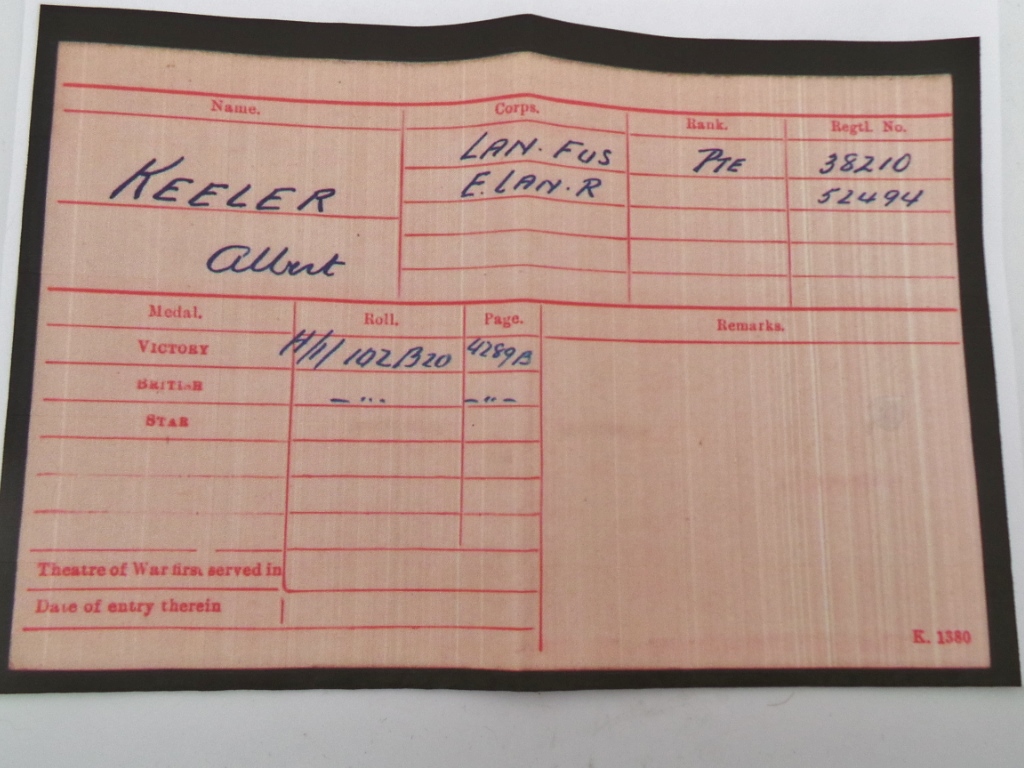 Name. Corps. Rank. Regtl. No.
KEELER LAN. FUS PTE 38210
E. LAN. R 52494
Albert
Medal. Roll. Page. Remarks.
VICTORY H/1/102B20 4289B
BRITISH -"- -"-
STAR
Theatre of War first served in
Date of entry therein
K. 1380